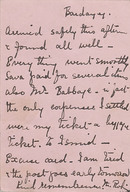 Bardizag.
Arrived safely this after
& found all well —
Every thing went smoothly
Sava paid for several items
also Mr. Babbage. – so just
the only expenses I settled
were my ticket – a luggage
ticket. to Ismid –
Excuse card. I am tired
& the post goes early tomorrow
remembrances to